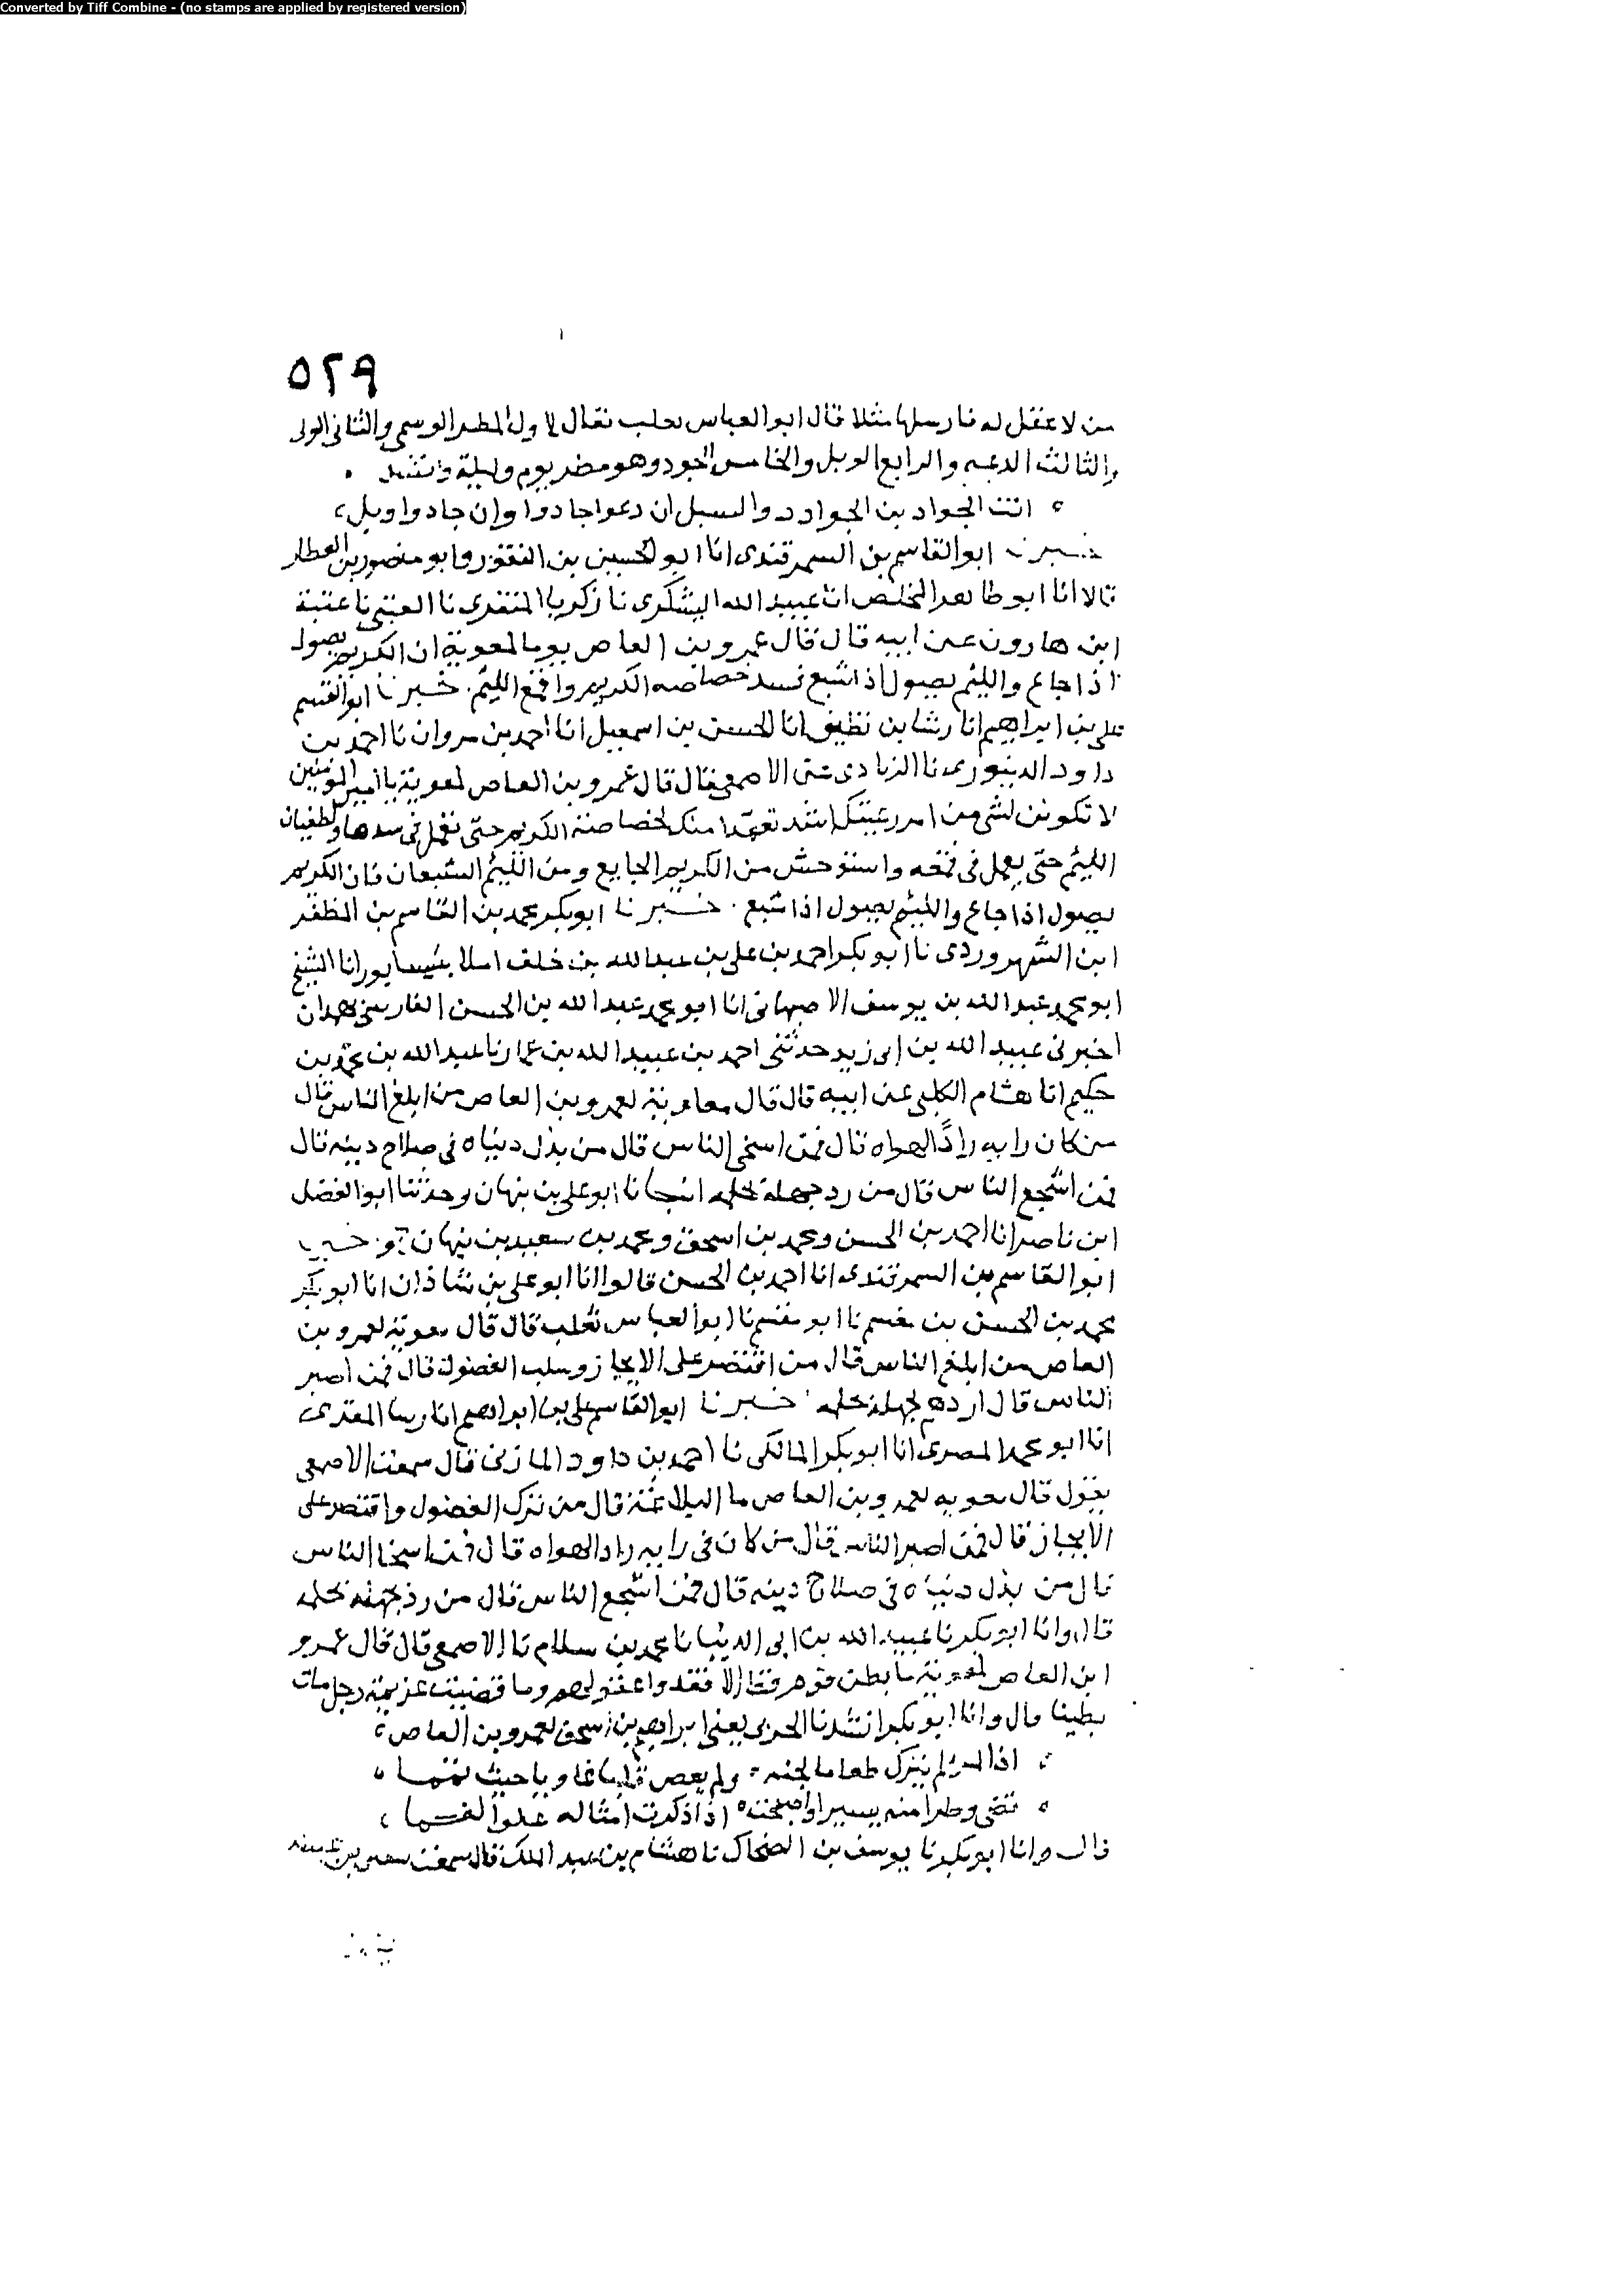 Converted by Tiff Combine - (no stamps are applied by registered version)
٥٢٩
من لا عقل له فارسلها مثلا قال ابو العباس ثعلب يقال لاول المطر الوسمي والثاني الولي
والثالث الديمه والرابع الوبل والخامس الجود وهو مطر يوم وليلة وانشد
انت الجواد بن الجواد بن سبل ان ديموا جادوا وإن جادوا وبل
خبرنا ابو القاسم بن السمرقندي انا ابو الحسين بن النقور وابو منصور بن العطار
قالا انا ابو طاهر المخلص انا عبيد الله اليشكري نا زكريا المنقري نا العتبي نا عتبة
ابن هارون عن ابيه قال قال عمرو بن العاص يوما لمعوية ان الكريم يصول
اذا جاع واللئيم يصول اذا شبع فسد خصاصه الكريم واقمع اللئيم. خبرنا ابو القسم
علي بن ابراهيم انا رشا بن نظيف انا الحسن بن اسمعيل انا احمد بن مروان نا احمد بن
داود الدينوري نا الزيادي عن الاصمعي قال قال عمرو بن العاص لمعوية يا امير المومنين
لا تكونن لشي من امر رعيتك اشد تعهدا منك لخصاصة الكريم حتى تعمل في سدها ولطغيان
اللئيم حتى يعمل في قمعه واستوحش من الكريم الجايع ومن اللئيم الشبعان فان الكريم
يصول اذا جاع واللئيم يصول اذا شبع. خبرنا ابو بكر محمد بن القاسم بن المظفر
ابن الشهروردي نا ابو بكر احمد بن علي بن عبد الله بن خلف املا بنيسابور انا الشيخ
ابو محمد عبد الله بن يوسف الاصبهاني انا ابو محمد عبد الله بن الحسن الفارسي بهمدان
اخبرني عبيد الله بن ابي زيد حدثني احمد بن عبيد الله بن عمار نا عبد الله بن عمرو بن
حكيم انا هشام الكلبي عن ابيه قال قال معاوية لعمرو بن العاص من ابلغ الناس قال
من كان رايه رادًا لهواه قال فمن اسخى الناس قال من بذل دنياه في صلاح دينه قال
فمن اشجع الناس قال من رد جهله بحلمه انبانا ابو علي بن نبهان وحدثنا ابو الفضل
ابن ناصر انا احمد بن الحسن ومحمد بن اسحق ومحمد بن سعيد بن نبهان ح و خبرنا
ابو القاسم بن السمرقندي انا احمد بن الحسن قالوا انا ابو علي بن شاذان انا ابو بكر
محمد بن الحسن بن مقسم نا ابو العباس ثعلب قال قال معوية لعمرو بن
العاص من ابلغ الناس قال من اقتصر على الايجاز وسلب الفضول قال فمن اصبر
الناس قال اردهم لجهله بحلمه خبرنا ابو القاسم علي بن ابراهيم انا رسا المقري
انا ابو محمد المصري انا ابو بكر المالكي نا احمد بن داود المازني قال سمعت الاصمعي
يقول قال معويه لعمرو بن العاص ما البلاغة قال من ترك الفضول واقتصر على
الايجاز قال فمن اصبر الناس قال من كان في رايه راد الهواه قال فمن اسخا الناس
قال من بذل دنياه في صلاح دينه قال فمن اشجع الناس قال من رد جهله بحلمه
قال وانا ابو بكر نا عبيد الله بن ابي الدنيا نا محمد بن سلام نا الاصمعي قال قال عمرو
ابن العاص لمعوية ما بطن قوم قط الا فقدوا عقولهم وما قضيت عزيمة رجل مات
بطينا قال وانا ابو بكر انشدنا الحربي يعني ابراهيم بن اسحق لعمرو بن العاص
اذا المرء لم يترك طعاما لحبه ولم يعص قلبا غاويا حيث يمما
قضى وطرا منه يسيرا واصبحت اذا ذكرت امثاله تملوا الفما
قال وانا ابو بكر نا يوسف بن الضحاك نا هشام بن عبد الملك قال سمعت